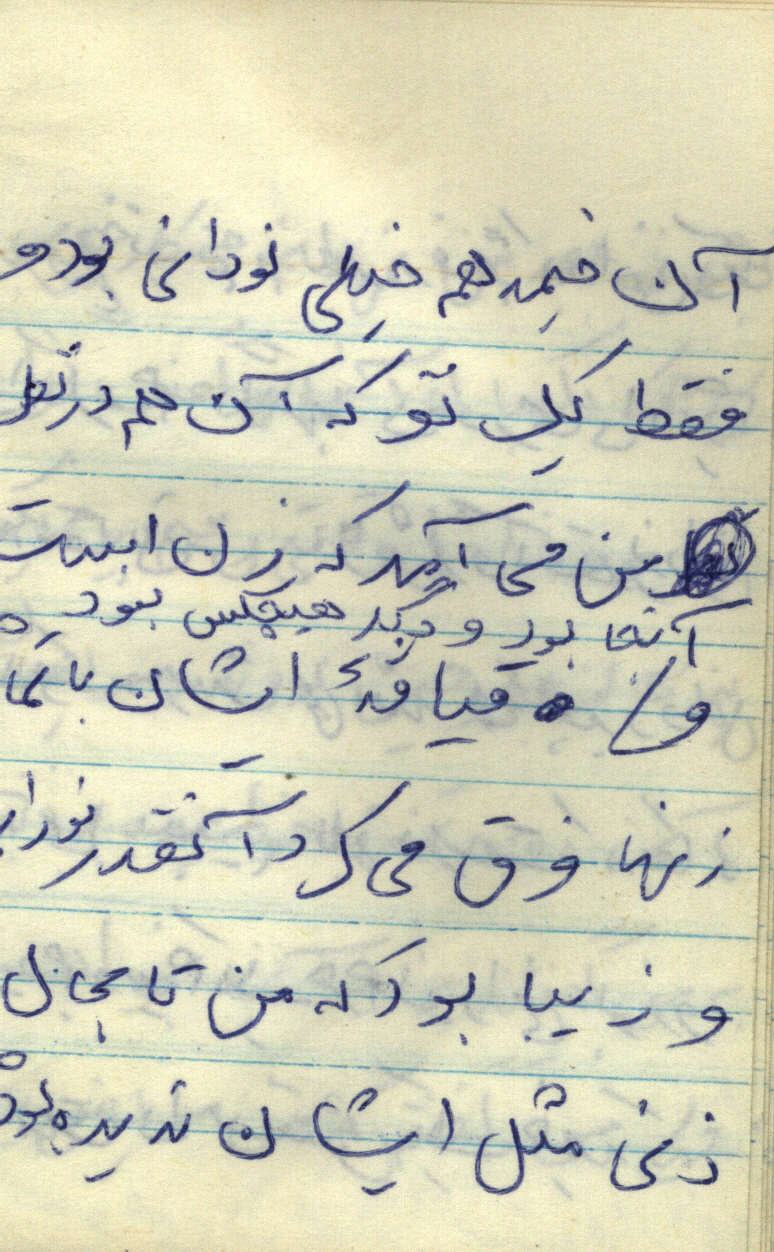 آن خیمه هم خیلی نورانی بود و
فقط یک تو که آن هم در نظر
من می آید که زن است
آنجا بود و دیگر هیچکس نبود
و قیافهٔ ایشان با تما
زنها فرق می کرد آنقدر نورا
و زیبا بود که من تا بحال
زنی مثل ایشان ندیده بود